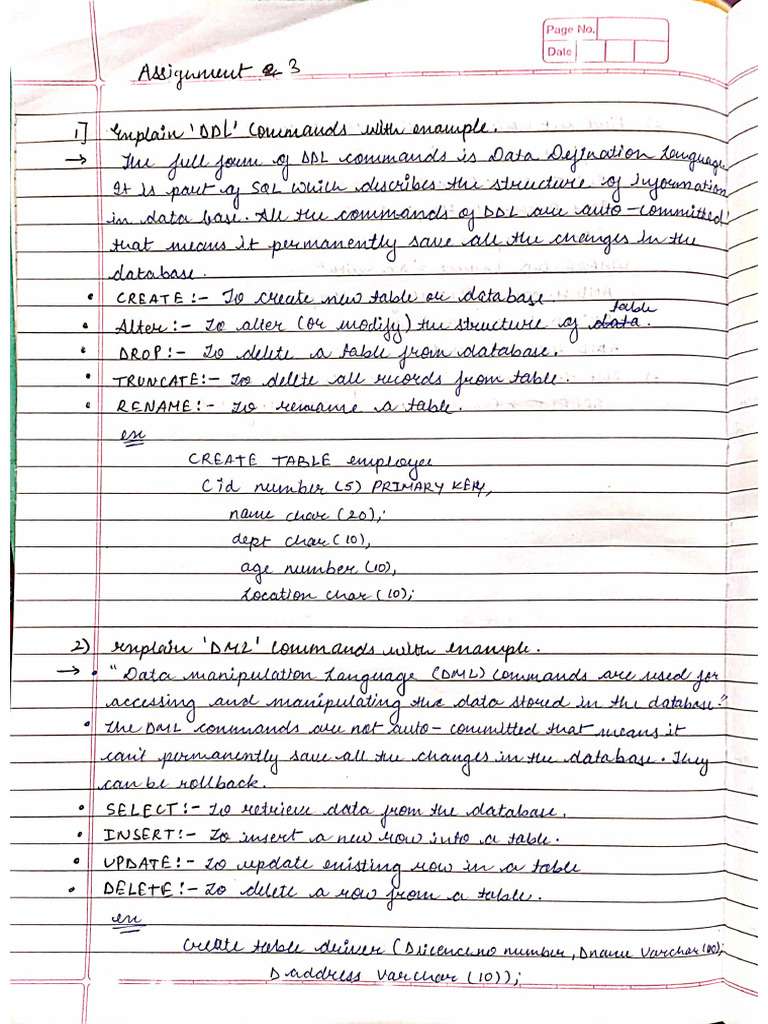 Page No.
Date
Assignment 3
1] Explain 'DDL' Commands with example.
→ The full form of DDL commands is Data Defination Language
It is part of SQL which describes the structure of information
in data base. All the commands of DDL are auto-committed
that means it permanently save all the changes in the
database.
• CREATE :- To create new table or database.
• Alter :- To alter (or modify) the structure of table.
• DROP :- To delete a table from database.
• TRUNCATE :- To delete all records from table.
• RENAME :- To rename a table.
ex
CREATE TABLE employee
Cid number (5) PRIMARY KEY,
name char (20);
dept char (10),
age number (10),
Location char (10);
2) Explain 'DML' Commands with example.
→ • "Data manipulation Language (DML) Commands are used for
accessing and manipulating the data stored in the database."
• The DML commands are not auto-committed that means it
can't permanently save all the changes in the database. They
can be rollback.
• SELECT :- To retrieve data from the database.
• INSERT :- To insert a new row into a table.
• UPDATE :- To update existing row in a table
• DELETE :- To delete a row from a table.
ex
Create table driver (Dlicenceno number, Dname Varchar
D address Varchar (10));